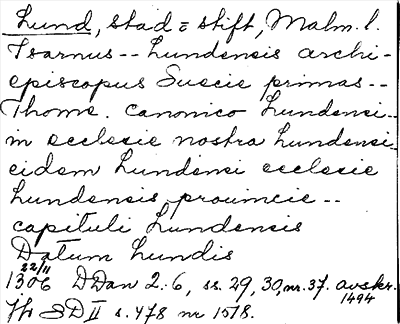 Lund, stad o stift, Malm. l.
Isarnus -- Lundensis archi-
episcopus Suecie primas --
Thome. canonico Lundensi --
in ecclesie nostra Lundensi.
eidem Lundensi ecclesie
Lundensis prouincie --
capituli Lundensis
Datum Lundis
22/11
1306 DDan 2:6, ss. 29, 30, nr. 37. avskr. 1494
Jfr SD II s. 478 nr 1518.